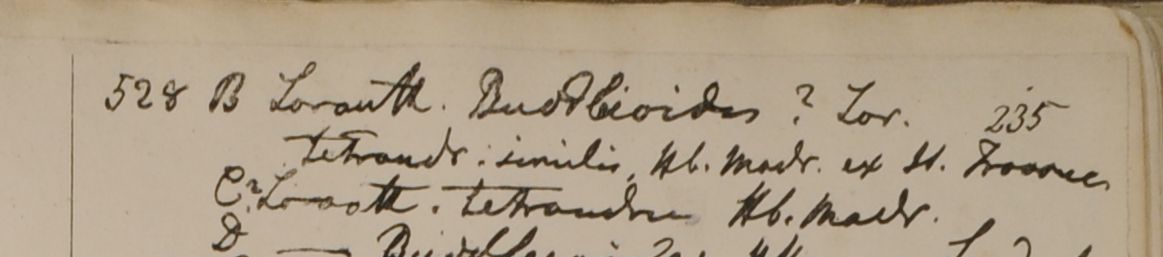 528 B Loranth. Buddleioides ? Lor. 235
tetrandr. similis, Hb. Madr. ex St. Travanc.
C? Loranth. tetrandrus Hb. Madr.
D —